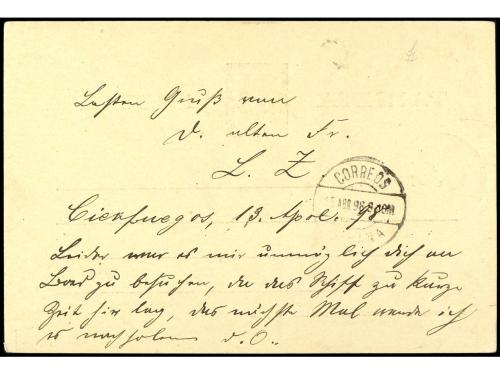 Besten Gruß von
D. alten Fr.
L. Z
CORREOS
ABR 98
Cienfuegos, 13. Apl. 98.
Leider war es mir unmöglich dich an
Bord zu besuchen, da das Schiff zu kurze
Zeit hier lag, das nächste Mal werde ich
es nachholen d. O.